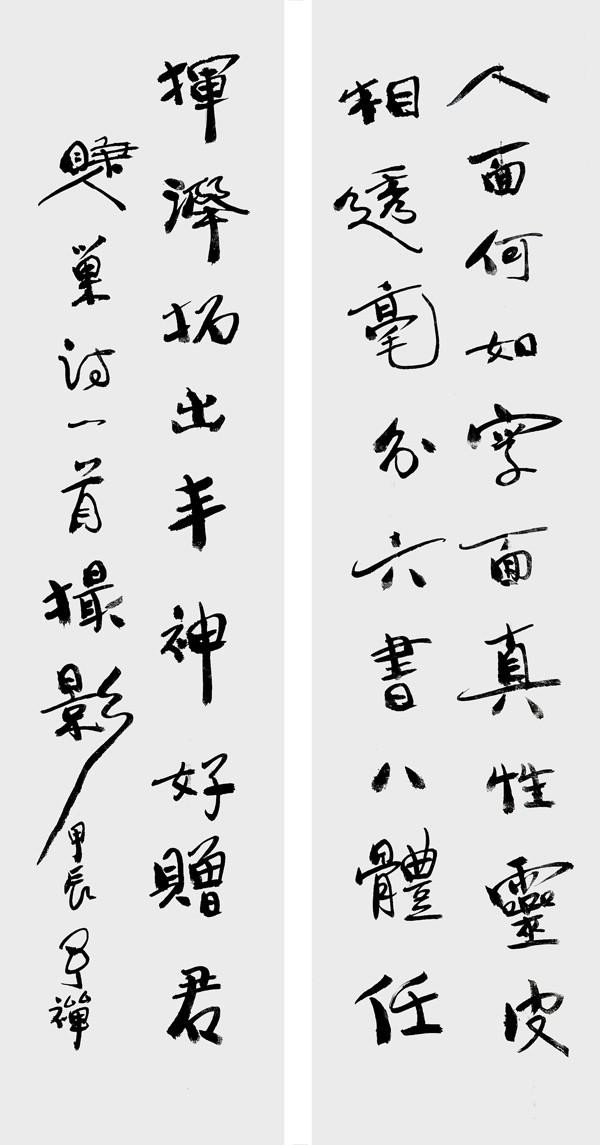 人面何如字面真性靈皮
相透毫分六書八體任
揮出丰神好贈君
睫巢詩一首撮影甲辰禪